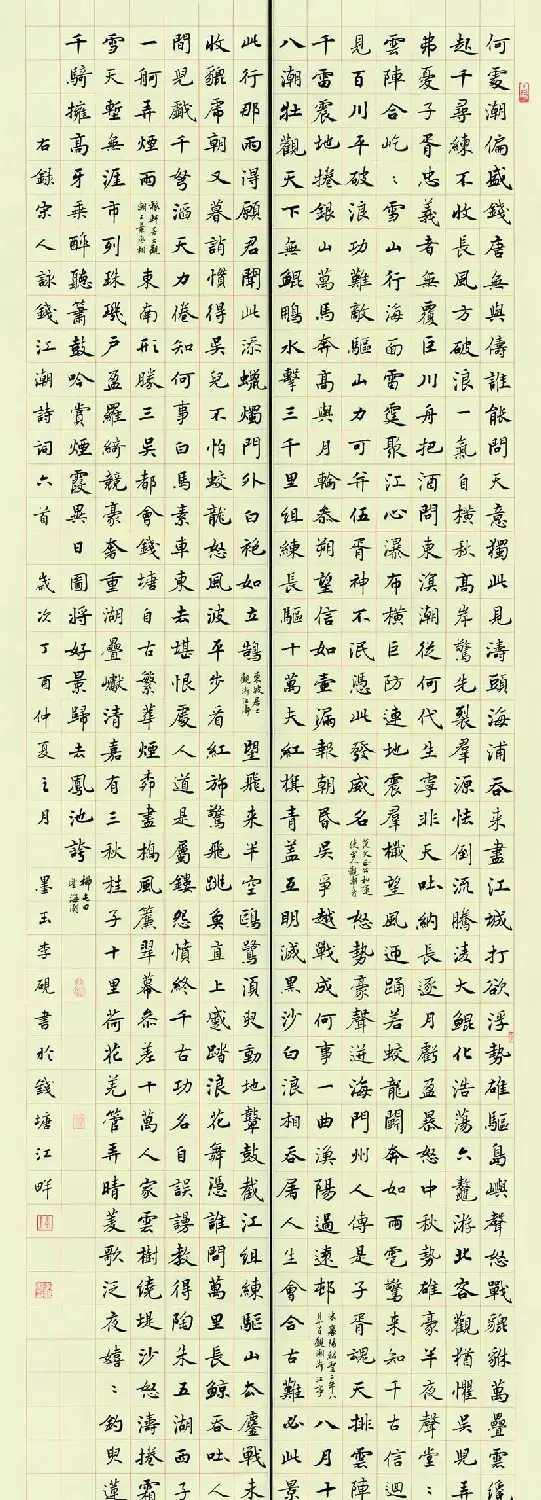 何處潮偏盛錢唐無與儔誰能問天意獨此見濤頭海浦吞來盡江城打欲浮勢雄驅島嶼聲怒戰貔貅萬疊雲纔
起千尋練不收長風方破浪一氣自橫秋高岸驚先裂羣源怯倒流騰凌大鯤化浩蕩六鼇游北客觀猶懼吳兒弄
弗憂子胥忠義者無覆巨川舟把酒問東溟潮從何代生寧非天吐納長逐月虧盈暴怒中秋勢雄豪半夜聲堂:
雲陣合屹:雪山行海面雷霆聚江心瀑布橫巨防連地震羣檝望風迎踊若蛟龍鬭奔如雨雹驚來知千古信迴
見百川平破浪功難敵驅山力可并伍胥神不泯憑此發威名范文正公和運使舍人觀潮二首怒勢豪聲迸海門州人傳是子胥魂天排雲陣
千雷震地捲銀山萬馬奔高與月輪參朔望信如壺漏報朝昏吳爭越戰成何事一曲漁陽過遠邨米襄陽紹聖二年八月十八日觀潮浙江亭八月十
八潮壯觀天下無鯤鵬水擊三千里組練長驅十萬夫紅旗青蓋互明滅黑沙白浪相吞屠人生會合古難必此景
此行那兩得願君聞此添蠟燭門外白袍如立鵠東坡居士觀浙江潮望飛來半空鷗鷺須臾動地鼙鼓截江組練驅山去鏖戰未
收貔虎朝又暮誚慣得吳兒不怕蛟龍怒風波平步看紅旆驚飛跳魚直上蹙踏浪花舞憑誰問萬里長鯨吞吐人
間兒戲千弩滔天力倦知何事白馬素車東去堪恨處人道是屬鏤怨憤終千古功名自誤謾教得陶朱五湖西子
一舸弄煙雨稼軒居士觀潮上葉丞相東南形勝三吳都會錢塘自古繁華煙柳畫橋風簾翠幕參差十萬人家雲樹繞堤沙怒濤捲霜
雪天塹無涯市列珠璣戶盈羅綺競豪奢重湖疊巘清嘉有三秋桂子十里荷花羌管弄晴菱歌泛夜嬉:釣叟蓮
千騎擁高牙乘醉聽簫鼓吟賞煙霞異日圖將好景歸去鳳池誇柳七望海潮
右錄宋人詠錢江潮詩詞六首 歲次丁酉仲夏之月 墨玉李硯書於錢塘江畔